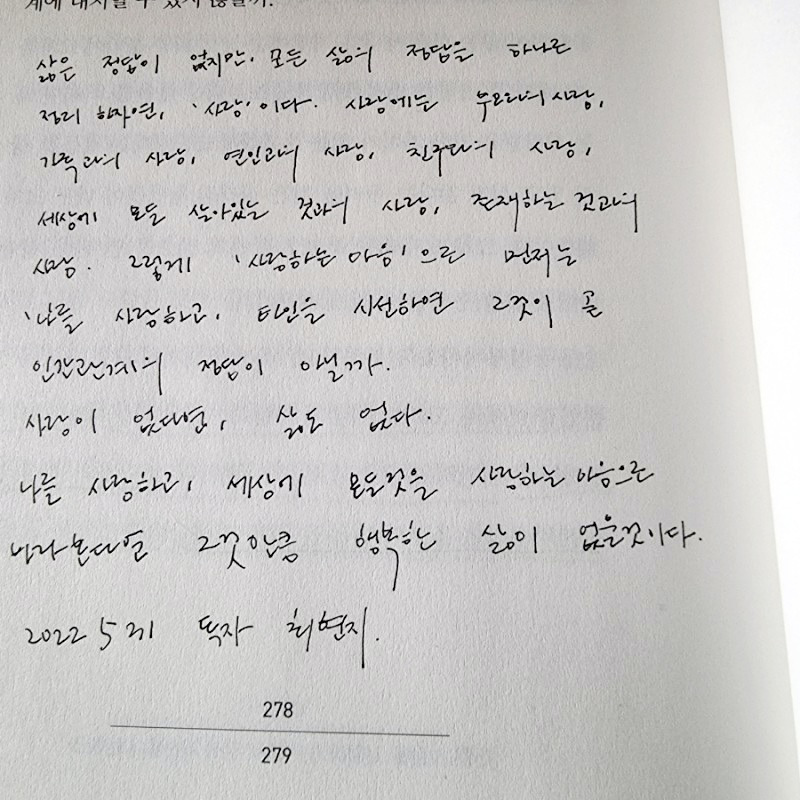 계에 대처할 수 있지 않을까.
삶은 정답이 없지만, 모든 삶의 정답을 하나로
정리 하자면, '사랑'이다. 사랑에는 부모와의 사랑,
가족과의 사랑, 연인과의 사랑, 친구와의 사랑,
세상에 모든 살아있는 것과의 사랑, 존재하는 것과의
사랑. 그렇게 '사랑하는 마음'으로 먼저는
'나를 사랑하고, 타인을 시선하면 그것이 곧
인간관계의 정답이 아닐까.
사랑이 없다면, 삶도 없다.
나를 사랑하고, 세상에 모든것을 사랑하는 마음으로
바라본다면 그것만큼 행복하는 삶이 없을것이다.
2022 5 독자 최현지.
278
279